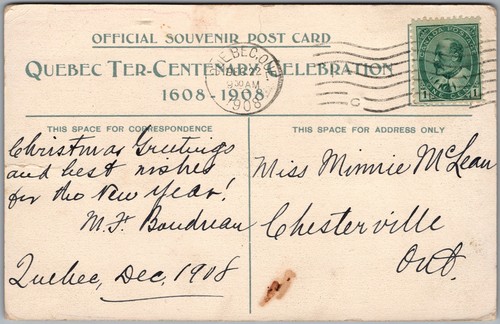 OFFICIAL SOUVENIR POST CARD
QUEBEC TER-CENTENARY CELEBRATION
1608-1908
QUEBEC, QUE.
22
9 30 AM
1908
CANADA POSTAGE
1 1
THIS SPACE FOR CORRESPONDENCE
THIS SPACE FOR ADDRESS ONLY
Christmas Greetings
and best wishes
for the New Year!
M. Boudreau
Quebec, Dec, 1908
Miss Minnie McLean
Chesterville
Ont.